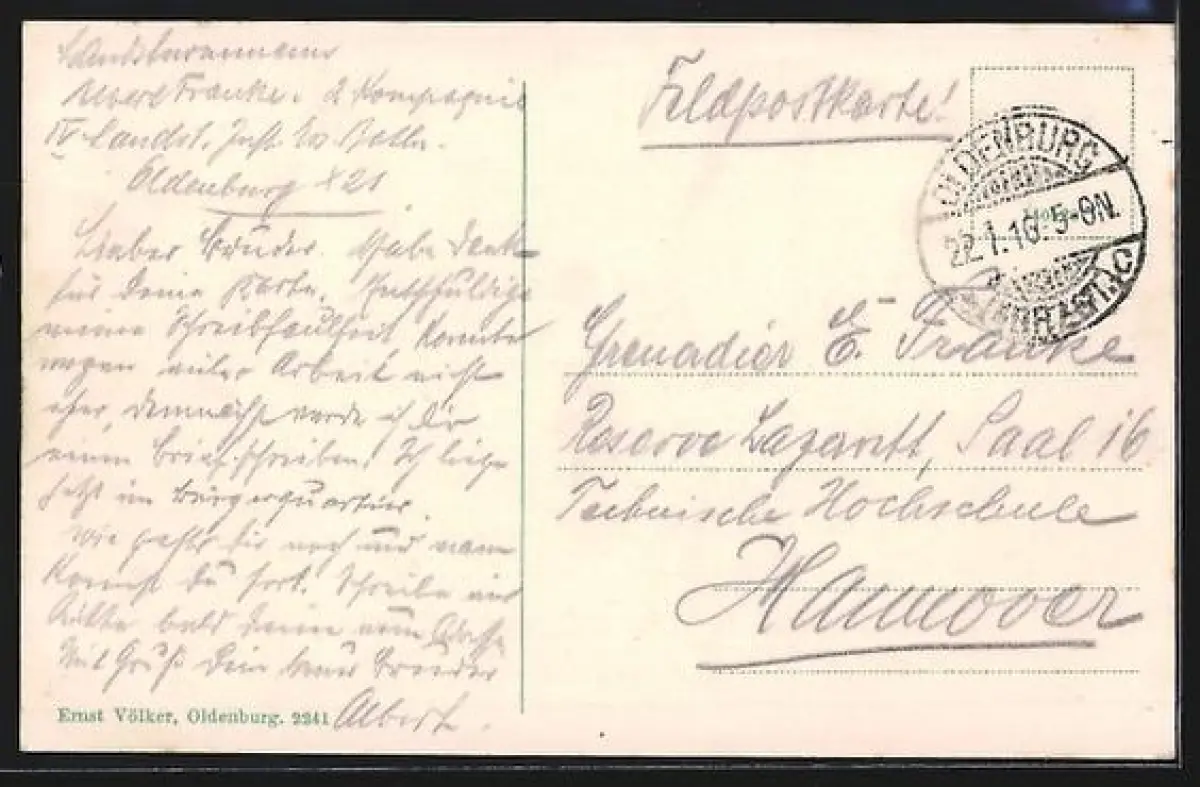 Landsturmmann
Albert Franke. 2 Kompagnie
IV Landst. Inft. Batl.
Oldenburg X 21
Lieber Bruder. Habe Dank
für Deine Karte. Entschuldige
meine Schreibfaulheit konnte
wegen vieler Arbeit nicht
eher, demnächst werde ich Dir
einen Brief schreiben. Ich liege
jetzt im Bürgerquartier.
Wie geht's Dir noch und wann
kommst Du fort. Schreibe mir
bitte bald Deine neue Adresse
Mit Gruß Dein treuer Bruder
Albert.
Ernst Völker, Oldenburg. 2341
Feldpostkarte!
OLDENBURG
22.1.16. 5-6N.
(GROSSHERZGT.)
Grenadier E. Franke
Reserve Lazarett, Saal 16
Technische Hochschule
Hannover